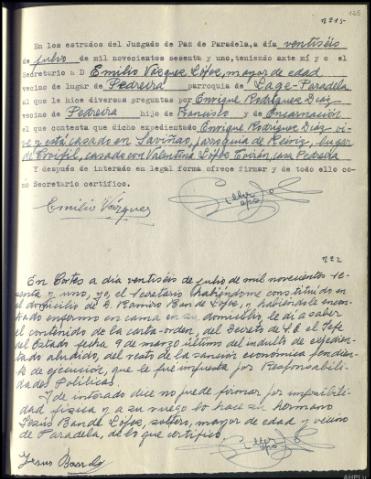 nº 15
En los estrados del Juzgado de Paz de Paradela, a día ventiséis
de julio de mil novecientos sesenta y uno, teniendo ante mí y e el
Secretario a D Emilio Vázquez López, mayor de edad
vecino de lugar de Pedreira parroquia de Lage-Paradela
al que le hice diversas preguntas por Enrique Rodríguez Díaz
vecino de Pedreira hijo de Francisco y de Encarnación
el que contesta dicho expedientado Enrique Rodríguez Díaz vi-
ve y está casado en Saviñao, parroquia de lugar
de casado con Valentina López
Y después de interado en legal forma ofrece firmar y de todo ello co-
mo Secretario certifico.
Emilio Vázquez
nº 2
En Cortes a día ventiséis de julio de mil novecientos se-
senta y uno, yo, el Secretario habiéndome constituído en
el domicilio de D. Ramiro Bande López, y habiéndole encon-
trado enfermo en cama en su domicilio, le dí a saber
el contenido de la carta-orden, del Decreto de S.E. el Jefe
del Estado fecha 9 de marzo último del indulto de expedien-
tado aludido, del resto de la sanción económica pendien-
te de ejecución, que le fué impuesta por Responsabili-
dades Políticas.
Y de interado dice no puede firmar por imposibili-
dad física y a su ruego lo hace su hermano
Jesús Bande López, soltero, mayor de edad y vecino
de Paradela, de lo que certifico.
Jesus Bande